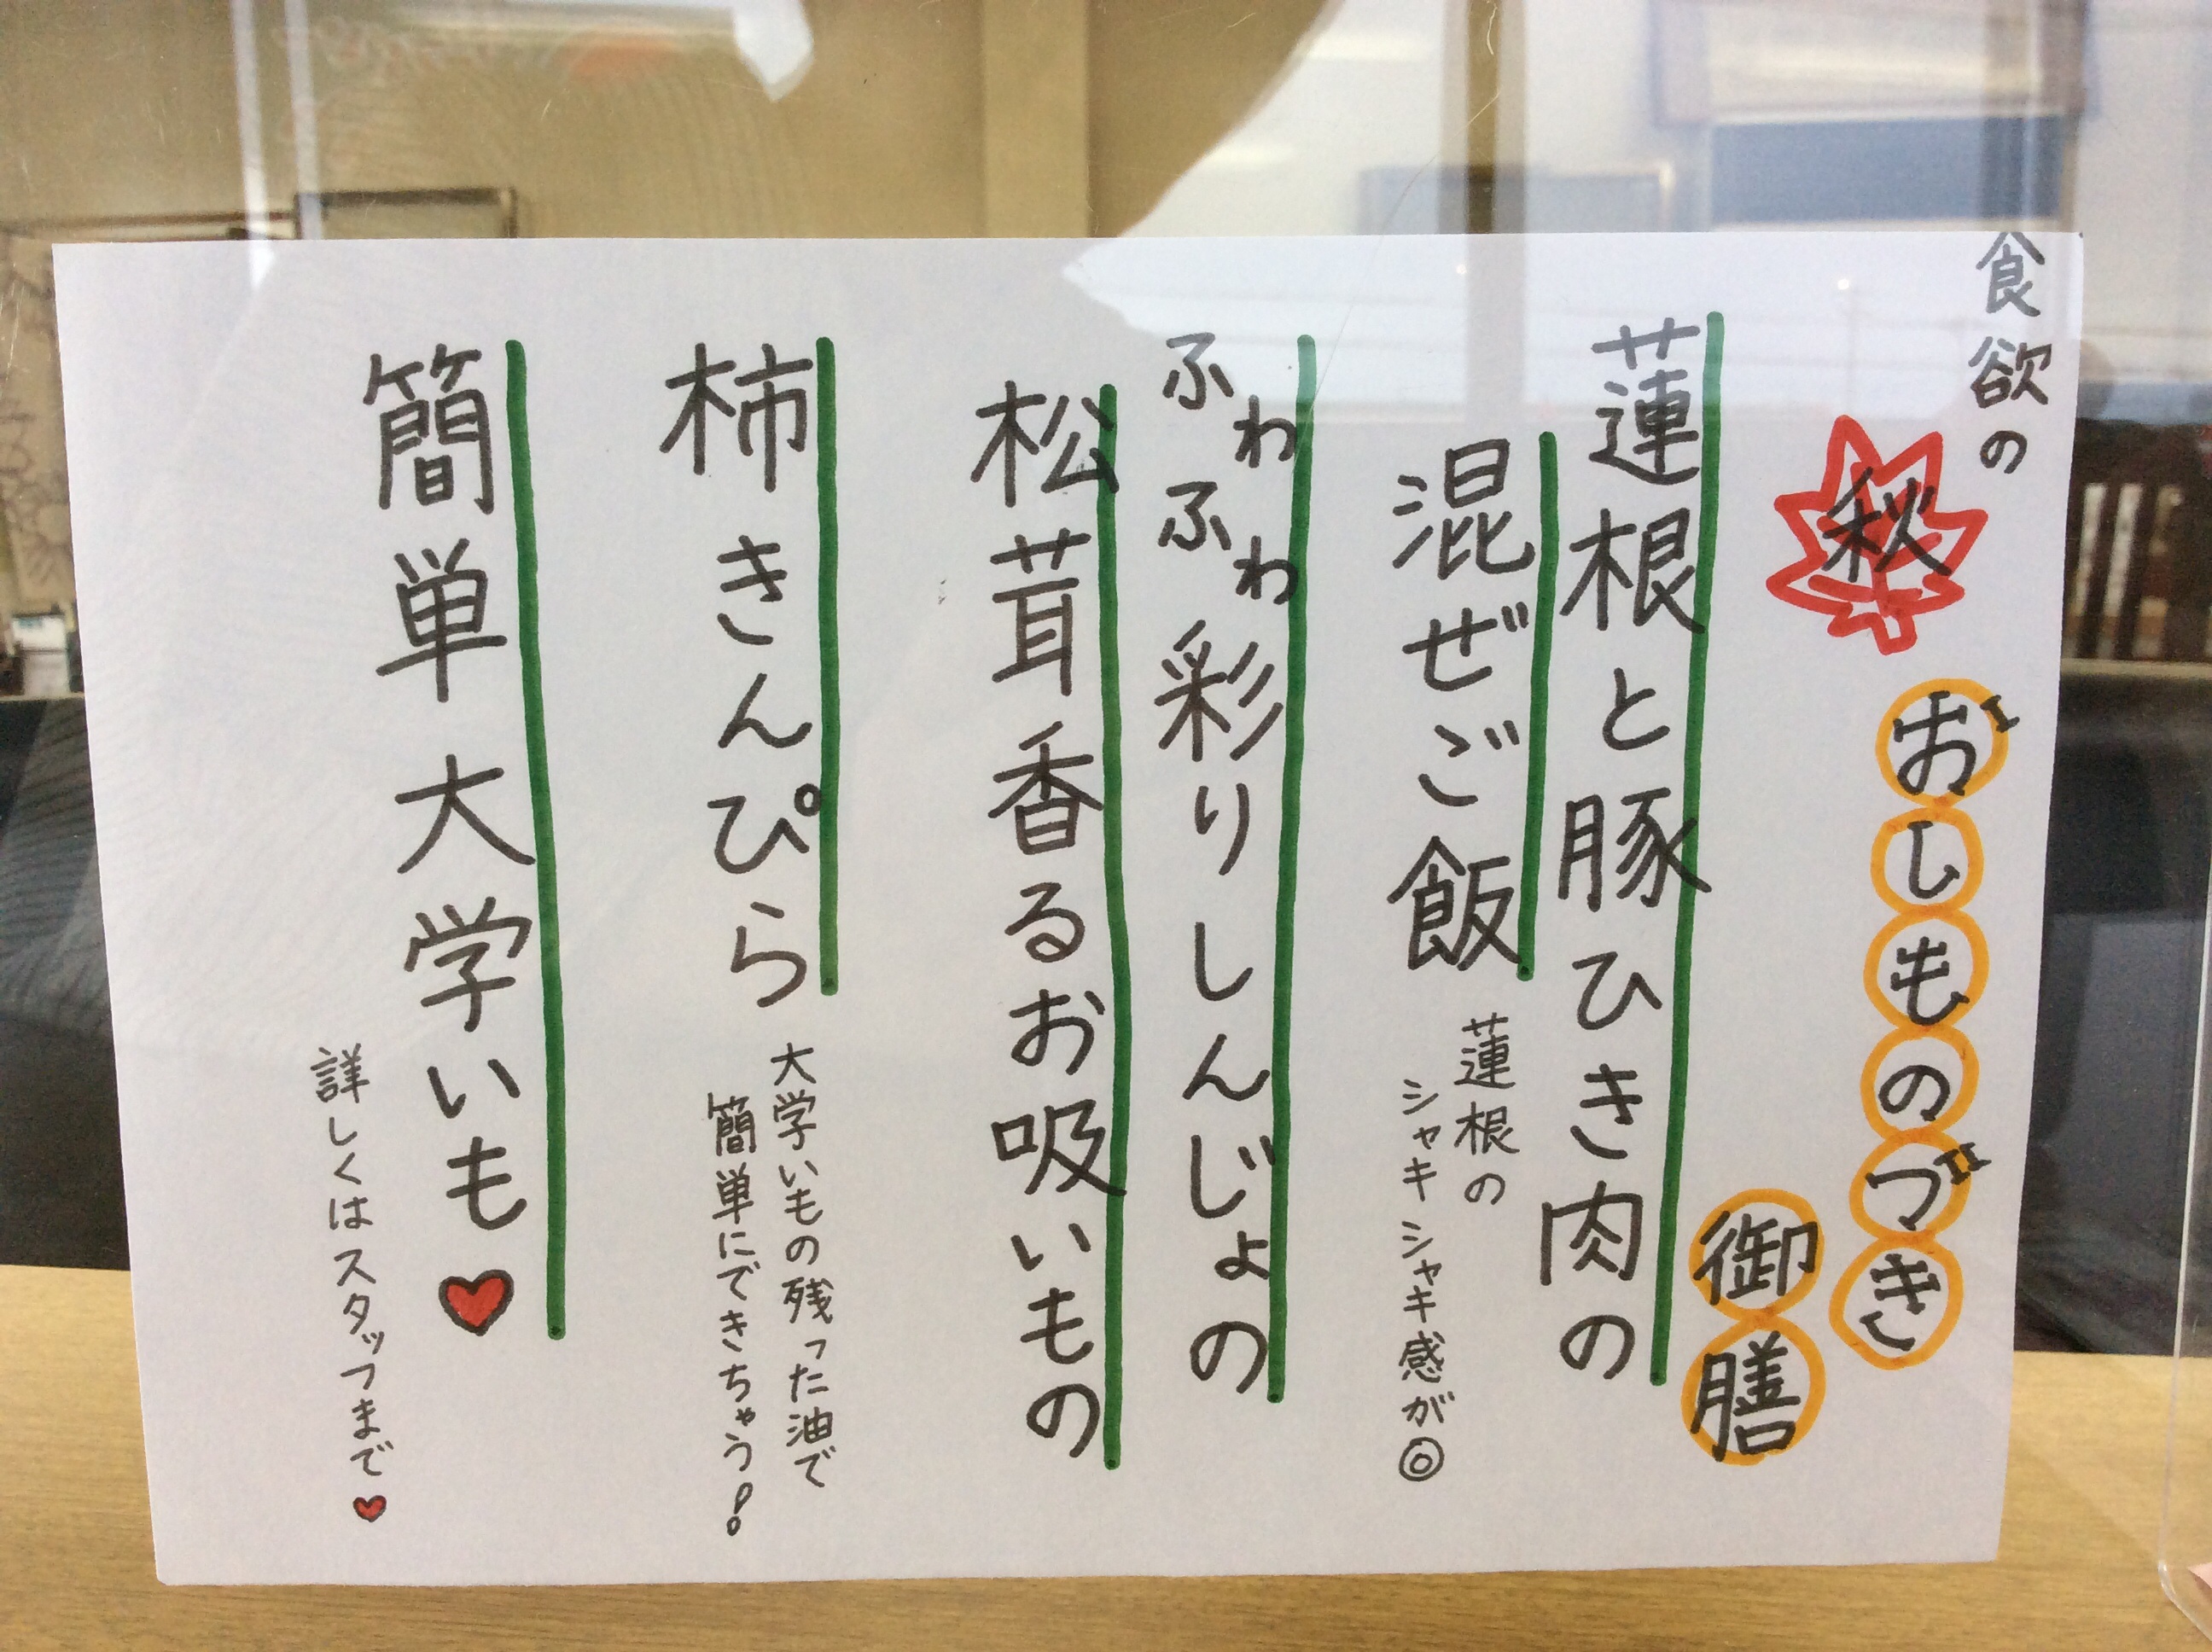 食欲の
秋
おⅠしものづⅡき
御膳
蓮根と豚ひき肉の
混ぜご飯
蓮根の
シャキシャキ感が◎
ふわふわ彩りしんじょの
松茸香るお吸いもの
柿きんぴら
大学いもの残った油で
簡単にできちゃう!
簡単大学いも♥
詳しくはスタッフまで♥